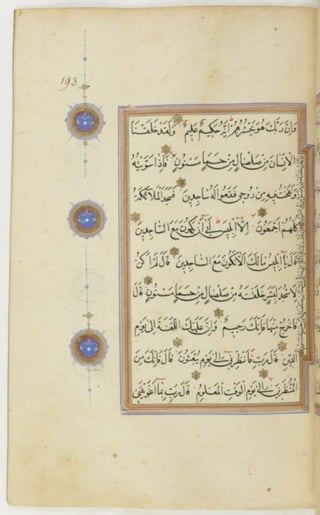 193
وَاِنَّ رَبَّكَ هُوَ يَحْشُرُهُمْ اِنَّهُ حَكِيمٌ عَلِيمٌ وَلَقَدْ خَلَقْنَا
الْاِنْسَانَ مِنْ صَلْصَالٍ مِنْ حَمَإٍ مَسْنُونٍ فَاِذَا سَوَّيْتُهُ
وَنَفَخْتُ فِيهِ مِنْ رُوحِي فَقَعُوا لَهُ سَاجِدِينَ فَسَجَدَ الْمَلَائِكَةُ
كُلُّهُمْ اَجْمَعُونَ اِلَّا اِبْلِيسَ اَبَى اَنْ يَكُونَ مَعَ السَّاجِدِينَ
قَالَ يَا اِبْلِيسُ مَا لَكَ اَلَّا تَكُونَ مَعَ السَّاجِدِينَ قَالَ لَمْ اَكُنْ
لِاَسْجُدَ لِبَشَرٍ خَلَقْتَهُ مِنْ صَلْصَالٍ مِنْ حَمَإٍ مَسْنُونٍ قَالَ
فَاخْرُجْ مِنْهَا فَاِنَّكَ رَجِيمٌ وَاِنَّ عَلَيْكَ اللَّعْنَةَ اِلَى يَوْمِ
الدِّينِ قَالَ رَبِّ فَاَنْظِرْنِي اِلَى يَوْمِ يُبْعَثُونَ قَالَ فَاِنَّكَ مِنَ
الْمُنْظَرِينَ اِلَى يَوْمِ الْوَقْتِ الْمَعْلُومِ قَالَ رَبِّ بِمَا اَغْوَيْتَنِي